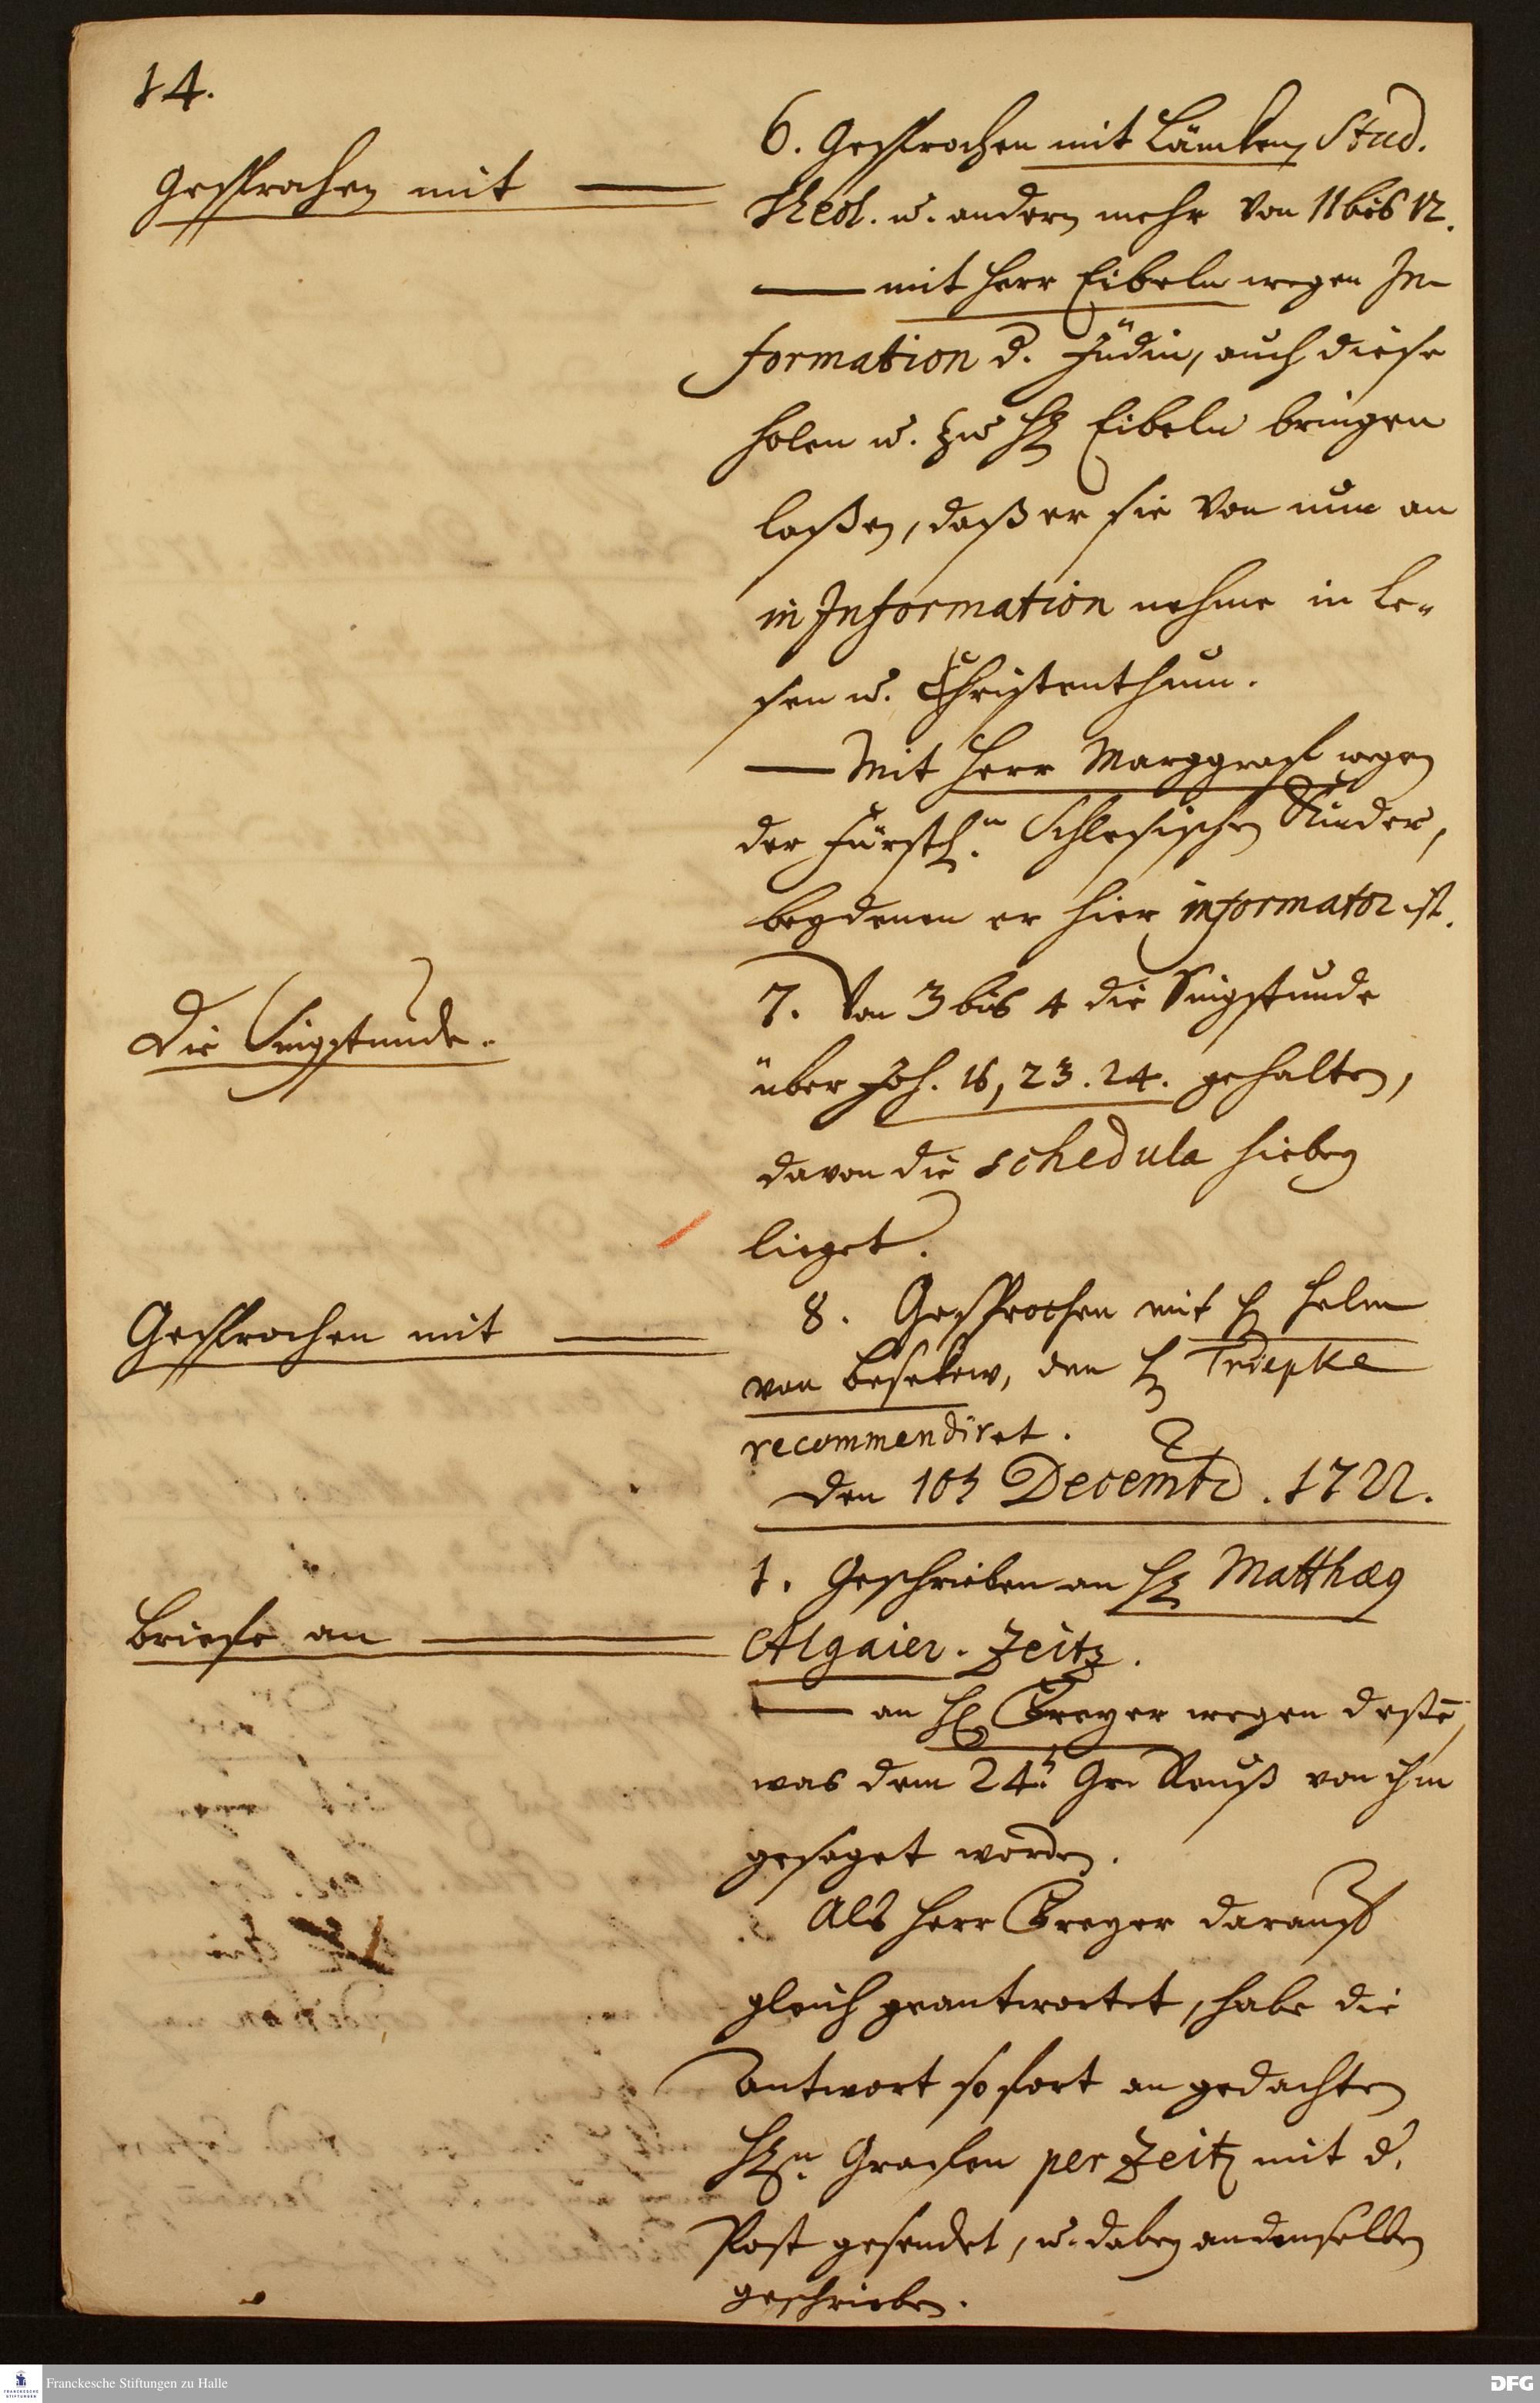 14.
Gesprochen mit
6. Gesprochen mit Lämken Stud.
Theol. u. andern mehr von 11 bis 12.
— mit Herr Eibeln wegen In-
formation d. Jüdin, auch diese
holen u. zu H. Eibeln bringen
laßen, daß er sie von nun an
in Information nehme in Le-
sen u. Christenthum.
— Mit Herr Marggraf wegen
der Fürstl.n Schlesischen Kinder,
bey denen er hier informator ist.
Die Singstunde.
7. Von 3 bis 4 die Singstunde
über Joh. 16, 23. 24. gehalten,
davon die schedula hiebey
lieget.
Gesprochen mit
8. Gesprochen mit H. Helm
von Besekow, den H.
recommendiret.
den 10t Decembr. 1722.
Briefe an
1. Geschrieben an H. Matthaeg
Algaier. Zeitz.
— an H. Freyer wegen deßē,
was dem 24.t Gr. Reuß von ihm
gesaget worden.
Als Herr Freyer darauf
gleich geantwortet, habe die
Antwort sofort an gedachten
H.n Grafen per Zeitz mit d.
Post gesendet, u. dabey an denselben
geschrieben.
Franckesche Stiftungen zu Halle
DFG